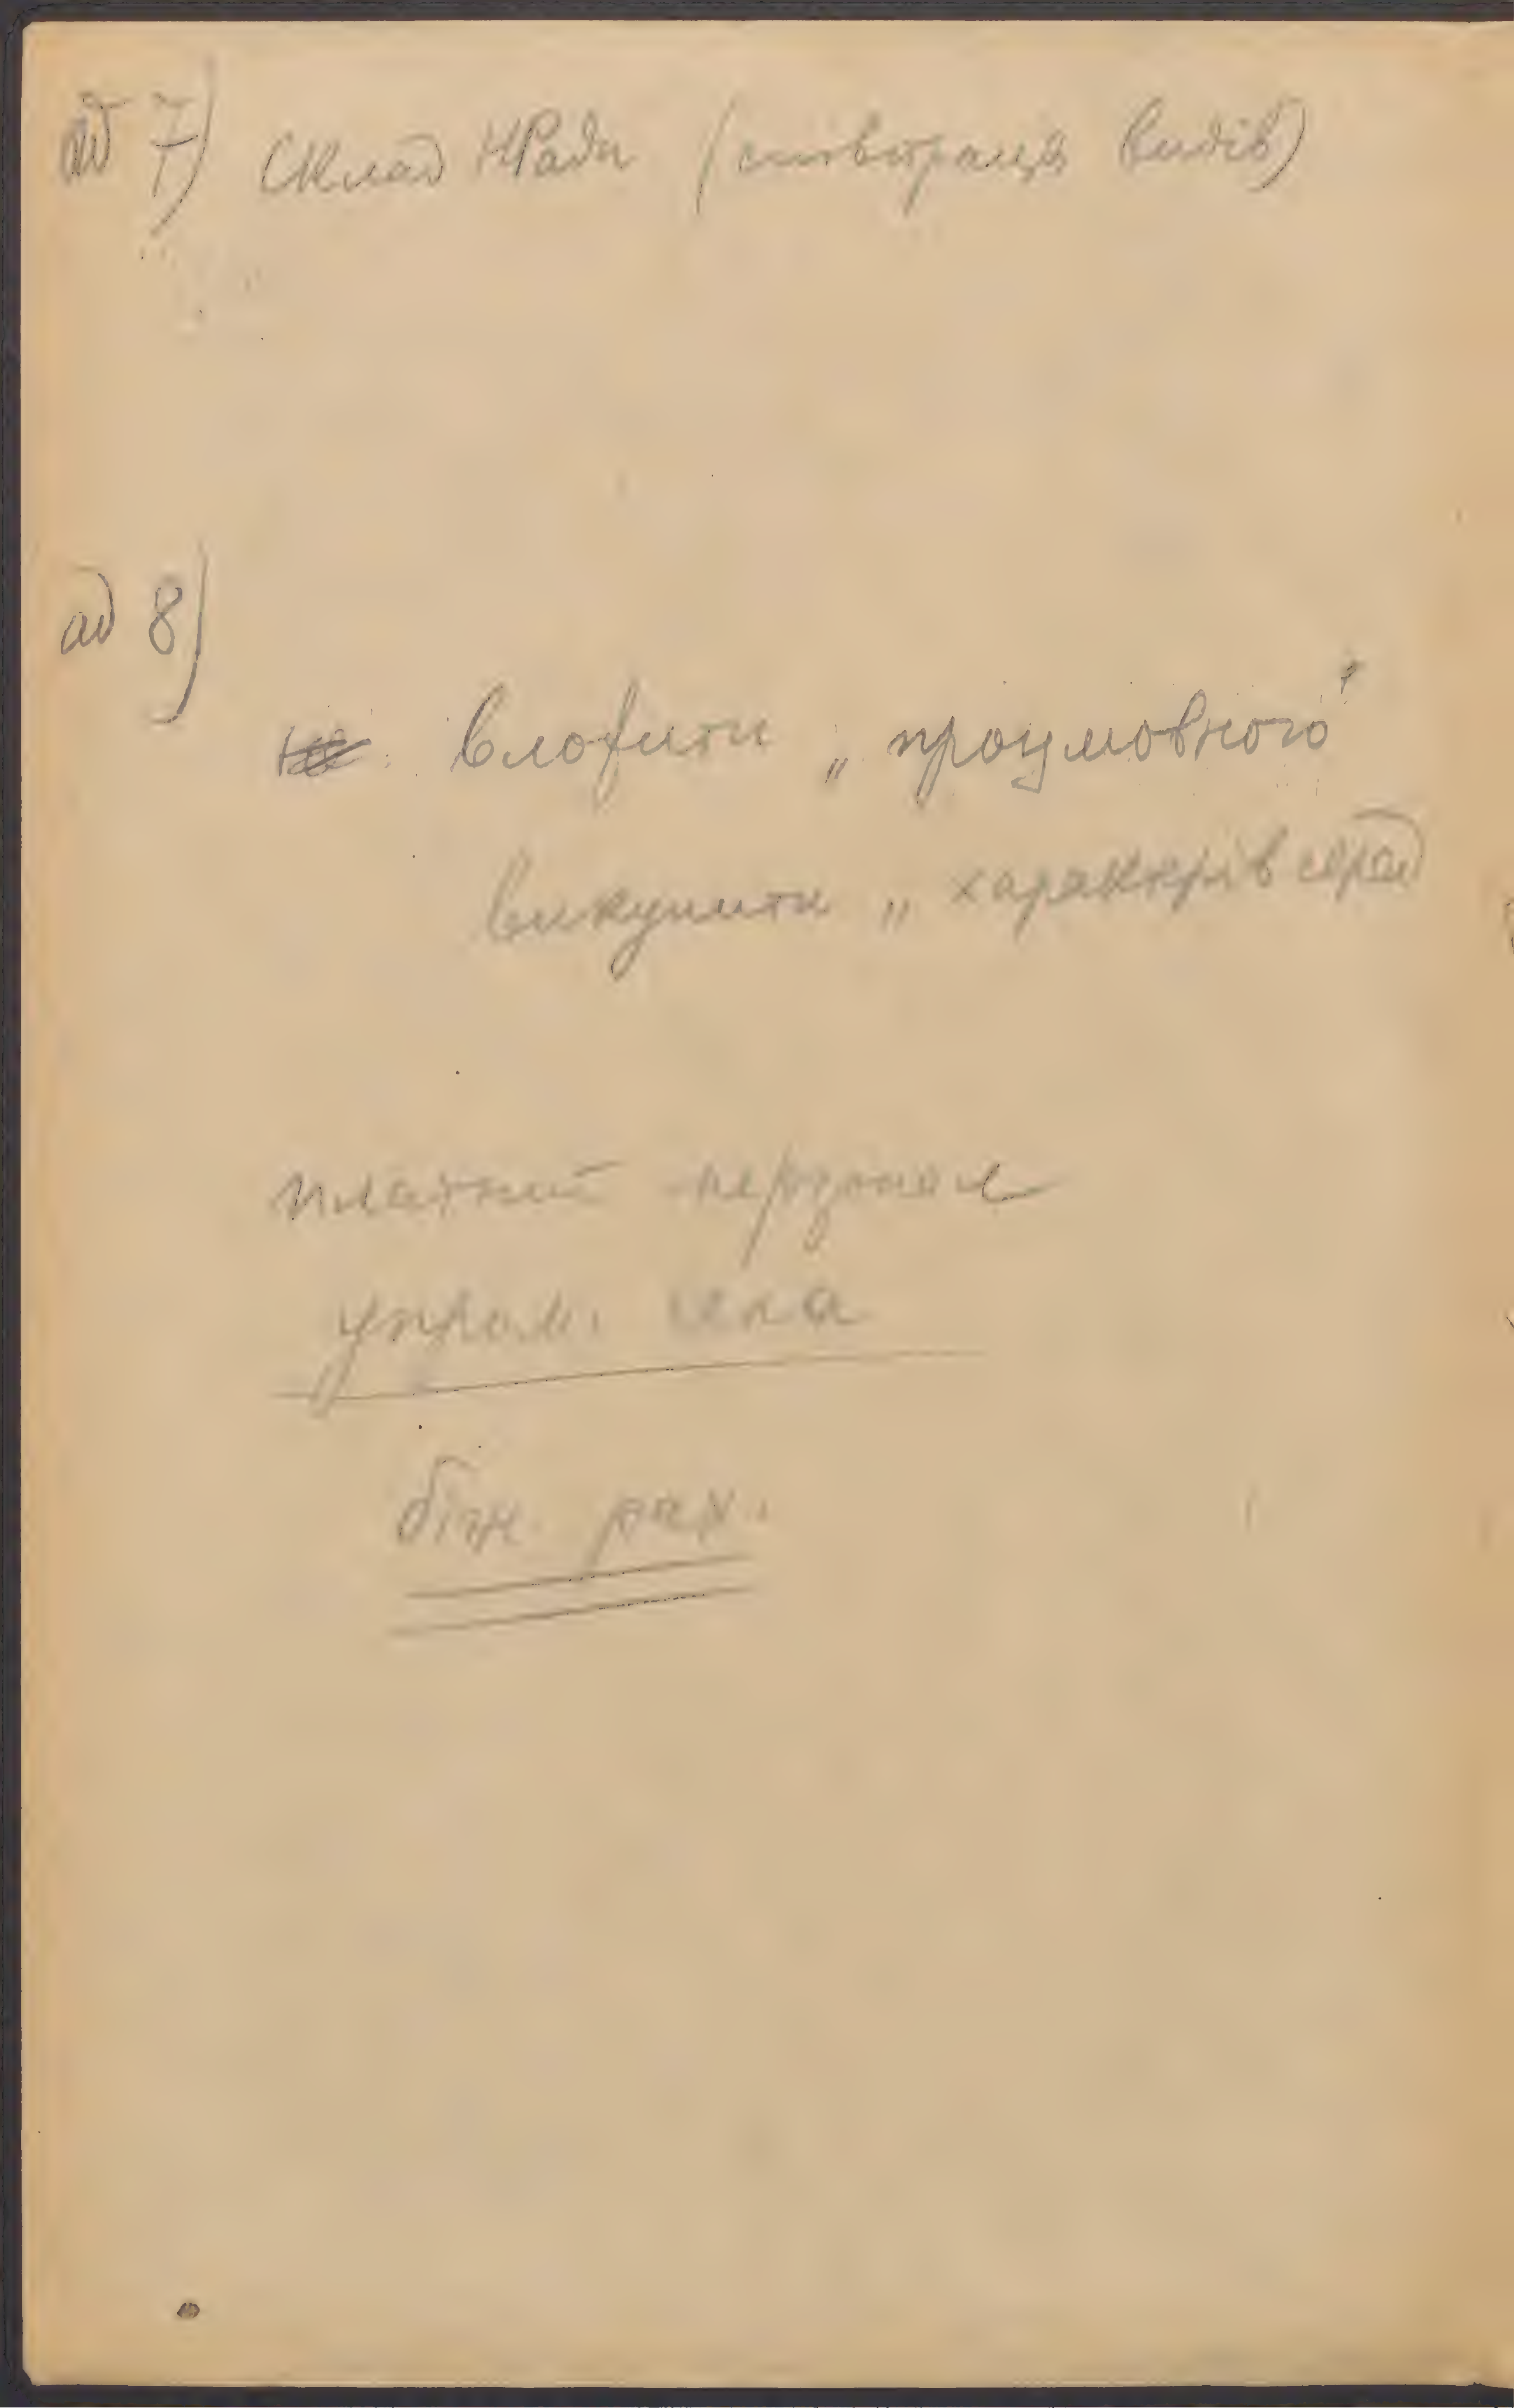 ад 7) Склад НРади (співпраця видів)
ад 8)
вложити „проумовного"
викупити „характрів серед
платний персонал
управл. села
біж. рах.